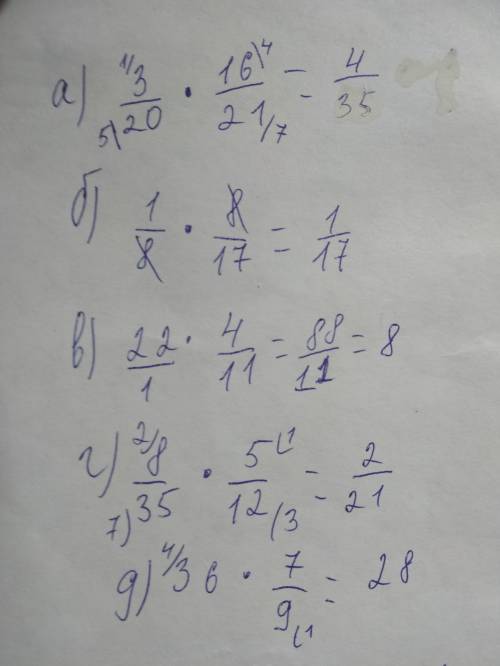 а) 1/3/20 5\ · 16\4/21/7 = 4/35
б) 1/8 · 8/17 = 1/17
в) 22/1 · 4/11 = 88/11 = 8
г) 2/8/35 7) · 5(1/12/3 = 2/21
д) 4/36 · 7/9(1 = 28